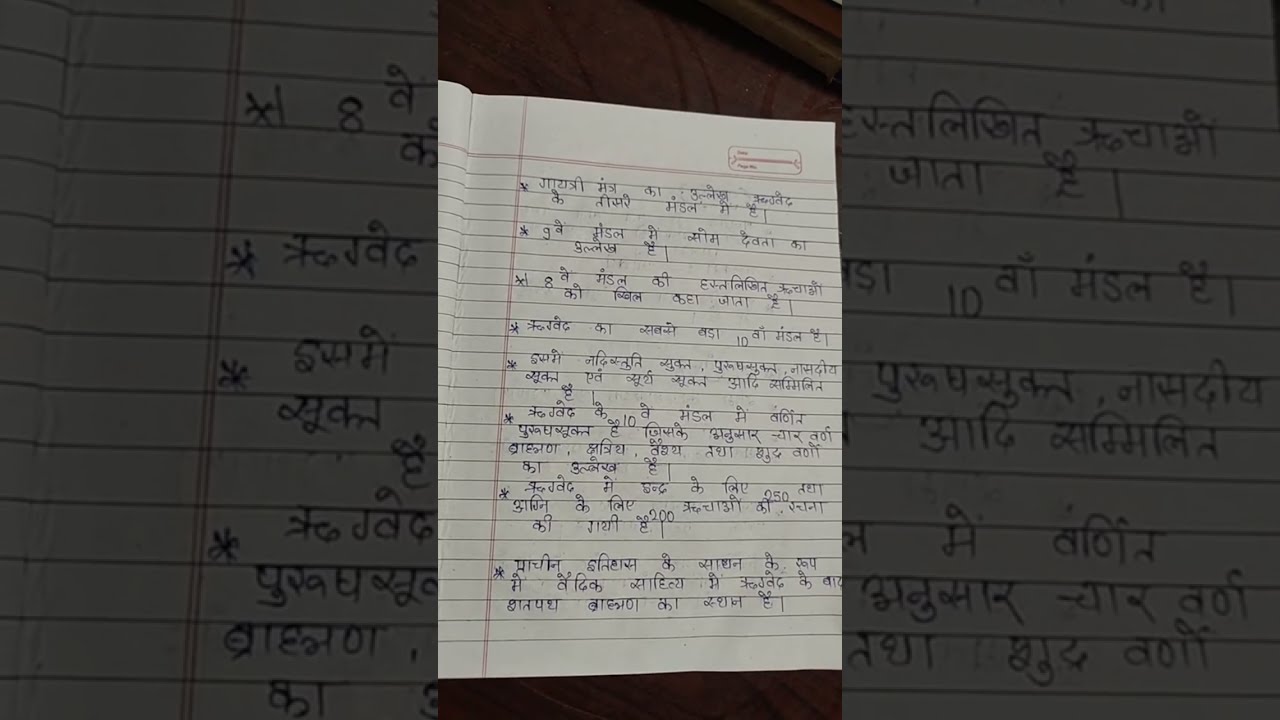 * गायत्री मंत्र का उल्लेख ऋग्वेद
के तीसरे मंडल में है।
* 9वे मंडल में सोम देवता का
उल्लेख है।
* 8 वे मंडल की हस्तलिखित ऋचाओं
को खिल कहा जाता है।
* ऋग्वेद का सबसे बड़ा 10वाँ मंडल है।
* इसमें नदिस्तुति सुक्त, पुरुषसुक्त, नासदीय
सूक्त एवं सूर्य सूक्त आदि सम्मिलित
है।
* ऋग्वेद के 10 वे मंडल में वर्णित
पुरुषसूक्त है जिसके अनुसार चार वर्ण
ब्राह्मण, क्षत्रिय, वैश्य तथा शुद्र वर्णो
का उल्लेख है।
* ऋग्वेद में इन्द्र के लिए 250 तथा
अग्नि के लिए 200 ऋचाओं की रचना
की गयी है।
* प्राचीन इतिहास के साधन के रूप
में वैदिक साहित्य में ऋग्वेद के बाद
शतपथ ब्राह्मण का स्थान है।